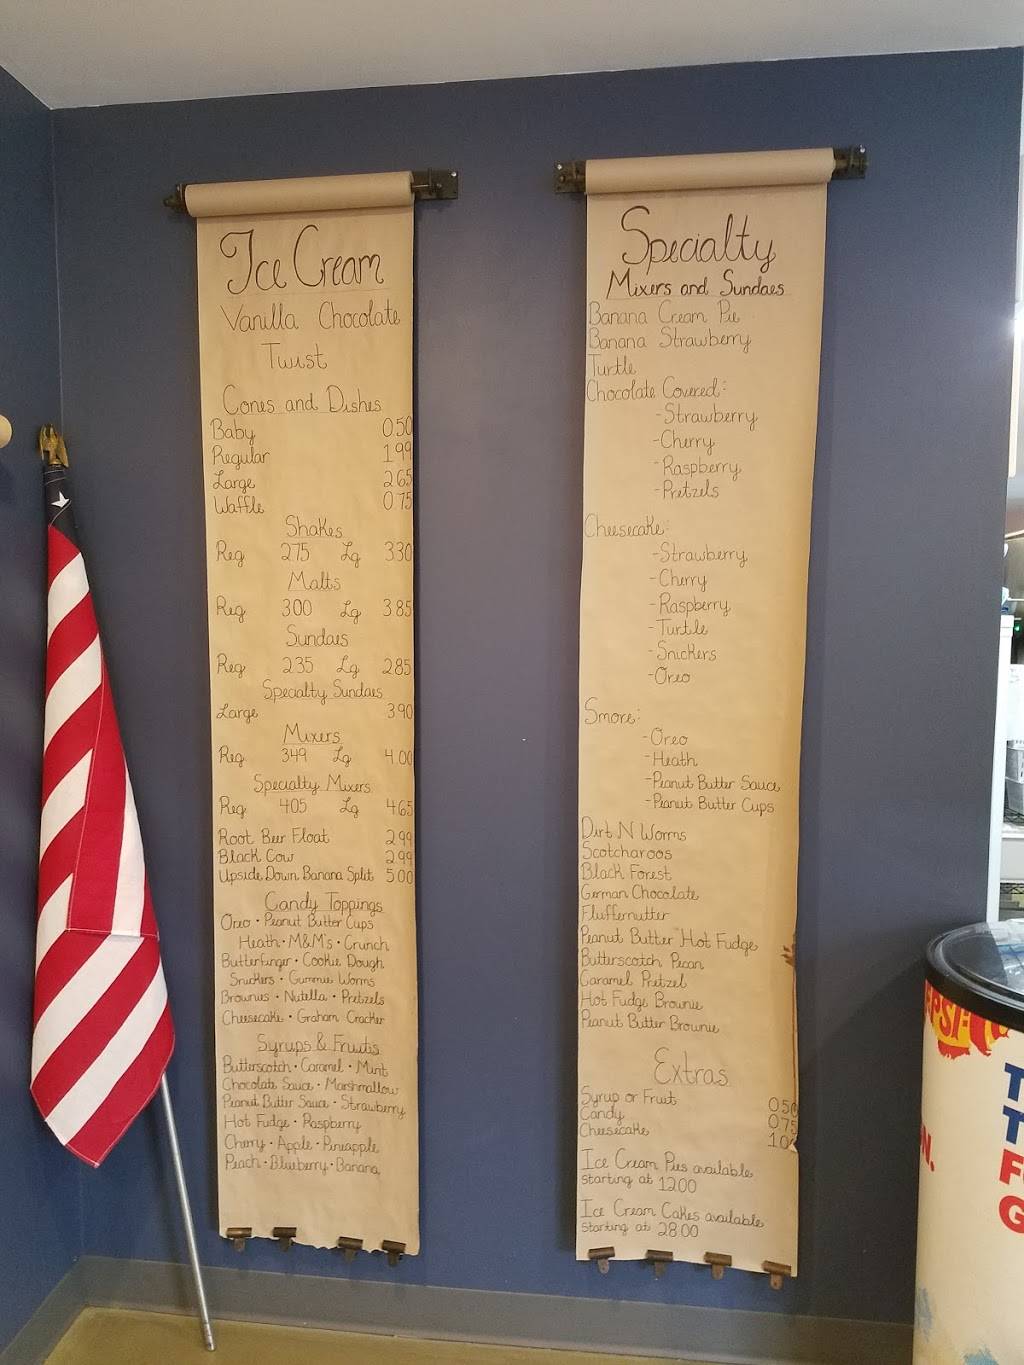 Ice Cream
Vanilla Chocolate
Twist
Cones and Dishes
Baby 0.50
Regular 1.99
Large 2.65
Waffle 0.75
Shakes
Reg 275 Lg 330
Malts
Reg 300 Lg 385
Sundaes
Reg 235 Lg 285
Specialty Sundaes
Large 390
Mixers
Reg 349 Lg 4.00
Specialty Mixers
Reg 405 Lg 465
Root Beer Float 299
Black Cow 299
Upside Down Banana Split 500
Candy Toppings
Oreo • Peanut Butter Cups
Heath • M&M's • Crunch
Butterfinger • Cookie Dough
Snickers • Gummie Worms
Brownies • Nutella • Pretzels
Cheesecake • Graham Cracker
Syrups & Fruits
Butterscotch • Caramel • Mint
Chocolate Sauce • Marshmallow
Peanut Butter Sauce • Strawberry
Hot Fudge • Raspberry
Cherry • Apple • Pineapple
Peach • Blueberry • Banana
Specialty
Mixers and Sundaes
Banana Cream Pie
Banana Strawberry
Turtle
Chocolate Covered:
-Strawberry
-Cherry
-Raspberry
-Pretzels
Cheesecake:
-Strawberry
-Cherry
-Raspberry
-Turtle
-Snickers
-Oreo
Smore:
-Oreo
-Heath
-Peanut Butter Sauce
-Peanut Butter Cups
Dirt N Worms
Scotcharoos
Black Forest
German Chocolate
Fluffernutter
Peanut Butter Hot Fudge
Butterscotch Pecan
Caramel Pretzel
Hot Fudge Brownie
Peanut Butter Brownie
Extras
Syrup or Fruit 0.50
Candy 0.75
Cheesecake
Ice Cream Pies available
starting at 12.00
Ice Cream Cakes available
starting at 28.00